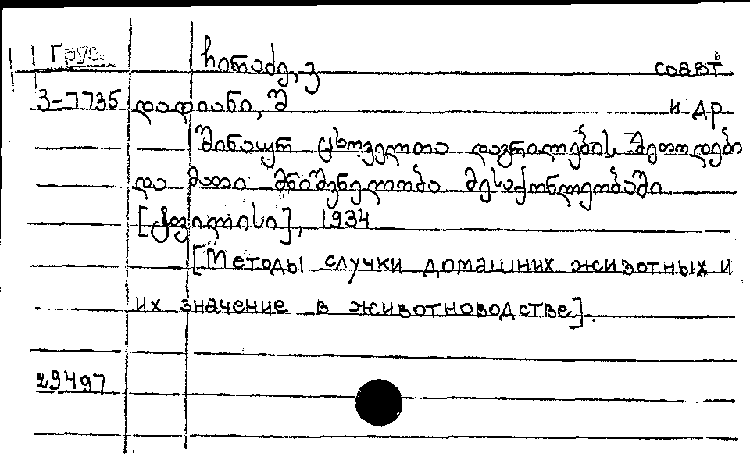 Груз.
ჩირაძე, ვ соавт.
3-7735 დადიანი, შ и др
შინაურ ცხოველთა დაგრილების მეთოდები
და მათი მნიშვნელობა მესაქონლეობაში
[ტფილისი], 1934
[Методы случки домашних животных и
их значение в животноводстве].
29497